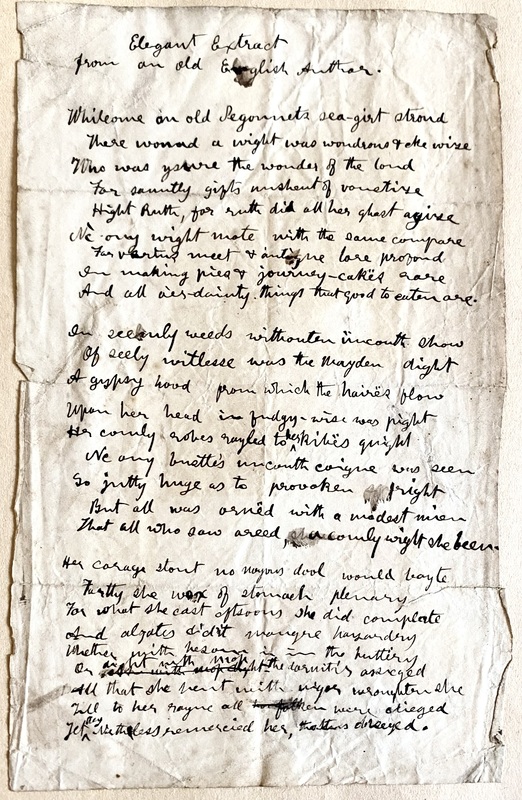 Elegant Extract
from an old English Author.
Whilcome on old Pegonnets sea-girt strond
There wonned a wight was wondrous & eke wise
Who was yswre the wonder of the lond
For sauntly gifts unshent of vanitise
Hight Ruth, for ruth did all her ghast agvise
Ne ony wight mote with the same compare
For vertus meet & antique lore profond
In making pies & journey-cakës rare
And all vier-dainty things that good to eaten are.
In seemly weeds withouten üncouth show
Of seely witlesse was the Mayden dight
A gypsy hood from which the hairës flow
Upon her head in pudgy-wise was pight
Her comly robes rayled to her kibës quight
Ne any bustles uncouth coigne was seen
So jutty huge as to provoken fright
But all was ornëd with a modest mien
That all who saw areed, a comly wight she been.
Her corage stout no mayns dool would bayte
Forthy she wox of stomach plenary
For what she cast eftsoons she did complete
And algates didst maugre hazardry
Whether with besom in the buttery
Or dight with mop the tarnits assieged
All that she hent with vigor wroughten she
Till to her sayne all were obieged
Yet they Nathless remercied her,